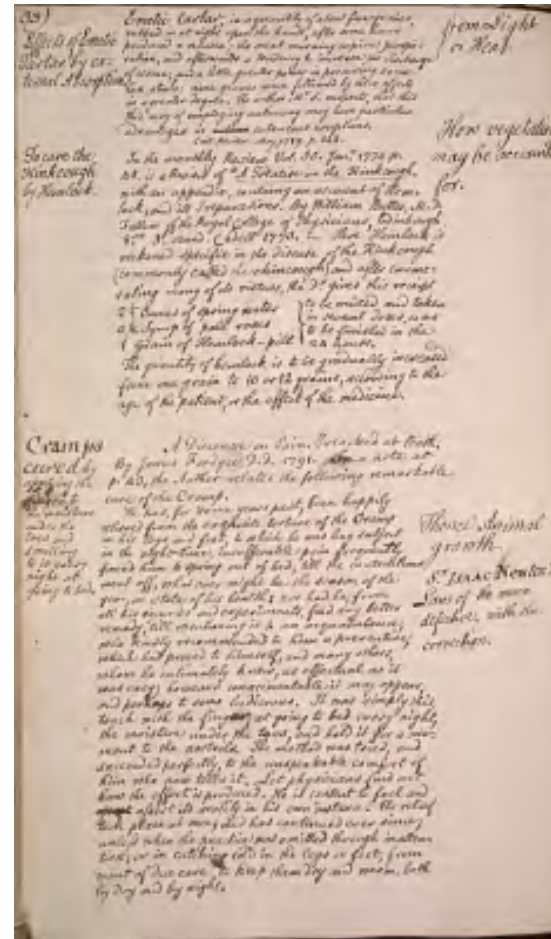 33)
Effects of Emetic
Tartar by ex-
ternal Absorption
Emetic Tartar, in a quantity of about five grains,
rubbed in at night upon the hands, after some hours
produced a nausea; the next morning copious perspi-
ration, and afterwards a tendency to increase the discharge
of urine; and a little greater power in procuring
stools: nine grains were followed by like effects
in a greater degree. The author Mr. S. suspects, that this
way of employing antimony may have particular
advantages in cutaneous eruptions.
from Light
or Heat.
To cure the
Kinkcough
by Hemlock.
In the monthly Review Vol. 50. Jany 1774 p.
is a Review of "A Treatise on the Kinkcough,
with an appendix, containing an account of Hem-
lock, and its Preparations. By William Butter, M.D.
Fellow of the Royal College of Physicians, Edinburgh
8vo Cadell 1773. Hemlock is
reckoned specific in the disease of the Kinkcough
(commonly called the chincough) and after enume-
rating many of its virtues, the Dr gives this receipt
2½ Ounces of spring water
Syrup of pale roses
1 Grain of Hemlock-pill
to be mixed and taken
in several doses, so as
to be finished in the
24 hours.
The quantity of hemlock is to be gradually increased
from one grain to 10 or 12 grains, according to the
age of the patient, or the effect of the medicine.
How vegetables
may be accounted
for.
Cramps
cured by
applying the
finger to
the moisture
under the
toes and
smelling
to it every
night at
going to bed.
A Discourse on Pain. Preached at Bath,
By James Fordyce D.D. 1791. a note at
p. the Author relates the following remarkable
cure of the Cramp.
He has, for some years past, been happily
relieved from the exquisite torture of the Cramp
in his legs and feet, to which he was long subject
in the night-time, insufferable pain frequently
forced him to spring out of bed, till the
went off, whatever might be the season of the
year, or state of his health; nor had he, from
all his inquiries and experiments, found any better
remedy, till mentioning it to an acquaintance;
who kindly recommended to him a preventive,
which had proved to himself, and many others,
whom he intimately knew, as effectual as it
was easy; however unaccountable it may appear,
and perhaps to some ludicrous. It was simply this
touch with the finger, at going to bed every night,
the moisture under the toes, and hold it for a mo-
ment to the nostrils. The method was tried, and
succeeded perfectly, to the unspeakable comfort of
him who now tells it. Let physicians find out
how the effect is produced. He is content to feel and
assert its reality in his own instance. The relief
took place at once, and has continued ever since;
unless when the practice was omitted through inatten-
tion, or in catching cold in the legs or feet, from
want of due care, to keep them dry and warm, both
by day and by night.
Those Animal
growth
Sr. ISAAC Newton's
Laws of the more
defective, with the
correction.